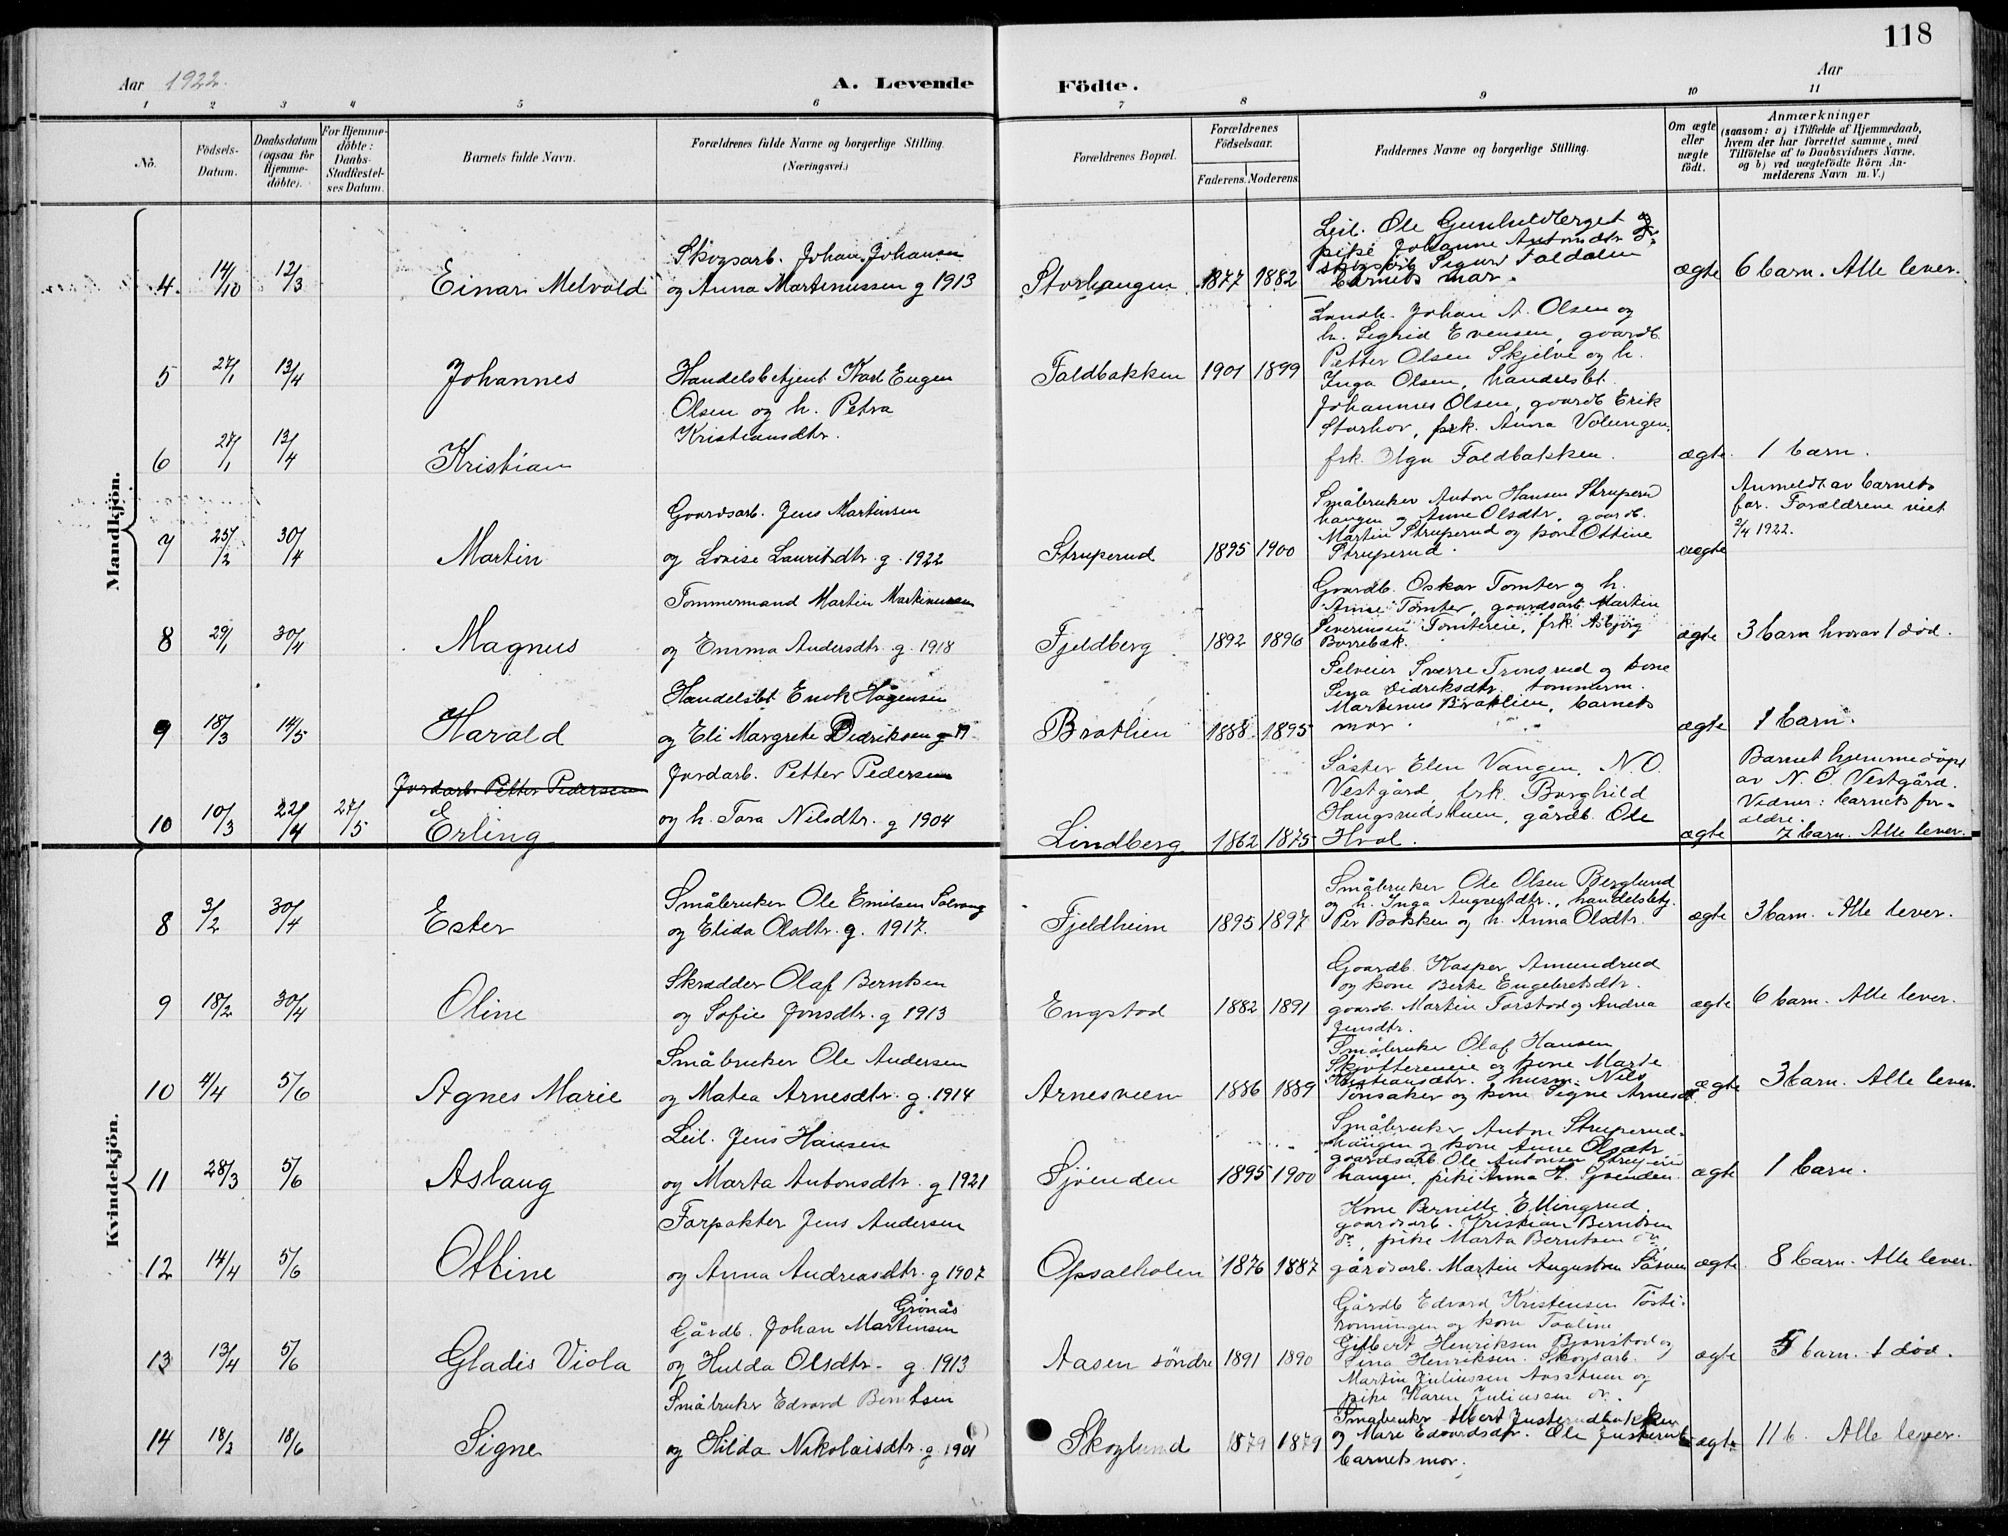 118
Aar 1922.
A. Levende Födte.
Aar
1 2 3 4 5 6 7 8 9 10 11
No.
Födsels-Datum.
Daabsdatum (ogsaa for Hjemme-döbte).
For Hjemme-döbte: Daabs-Stadfæstel-ses Datum.
Barnets fulde Navn.
Forældrenes fulde Navne og borgerlige Stilling. (Næringsvei.)
Forældrenes Bopæl.
Forældrenes Födselsaar.
Faderens. Moderens.
Faddernes Navne og borgerlige Stilling.
Om ægte eller uægte födt.
Anmærkninger
(saasom: a) i Tilfælde af Hjemmedaab,
hvem der har forrettet samme, med
Tilföielse af to Daabsvidners Navne,
og b) ved uægtefödte Börn An-
melderens Navn m. V.)
Mandkjön.
4 14/10 12/3 Einar Melvold
Skogsarb. Johan Johansen
og Anna Martinussen g 1913
Storhaugen 1877 1882
Leil. Ole Gunhildberget og
pike Johanne Antonsdtr
skogsarb Sigurd Foldalen
barnets mor.
ægte 6 barn. Alle lever.
5 27/1 13/4 Johannes
Handelsbetjent Karl Eugen
Olsen og h. Petra
Kristiansdtr.
Foldbakken 1901 1899
Landh. Johan A. Olsen og
h. Sigrid Evensen, gaardb.
Petter Olsen Skjelve og h.
Inga Olsen, handelsbt.
Johannes Olsen, gaardb Erik
Storhov, frk. Anna Volungen,
frk. Olga Foldbakken.
6 27/1 13/4 Kristian
ægte 1 barn.
7 25/2 30/4 Martin
Gaardsarb. Jens Martinsen
og Lovise Lauritsdtr. g. 1922
Struperud 1895 1900
Småbruker Anton Hansen Struperud
haugen og Anne Olsdtr, gaardb.
Martin Struperud og kone Ottine
Struperud.
uægte
Anmeldt av barnets
far. Forældrene viet
2/4 1922.
8 29/1 30/4 Magnus
Tommermand Martin Martinusen
og Emma Andersdtr. g. 1918
Fjeldberg 1892 1896
Gaardb. Oskar Tomter og h.
Anne Tomter, gaardsarb. Martin
Severinsen Tomtereie, frk. Asbjørg
Borrebæk.
ægte 3 barn hvorav 1 død.
9 18/3 14/5 Harald
Handelsbt Enok Hagensen
og Eli Margrete Didriksen g 19
Bratlien 1888 1895
Selveier Sverre Tronsrud og kone
Lena Didriksdtr, tommerm.
Martinus Bratlien, barnets
mor.
ægte 1 barn.
Jordarb. Petter Pedersen
10 10/3 22/4 27/5 Erling
Jordarb. Petter Pedersen
og h. Tora Nilsdtr. g 1904
Lindberg 1862 1875
Søster Elen Vangen, N. O.
Vestgård, frk. Borghild
Haugsrudstuen, gårdb. Ole
Hval.
ægte
Barnet hjemmedøpt
av N. O. Vestgård.
Vidner: barnets for-
ældre.
7 barn. Alle lever.
Kvindekjön.
8 3/2 30/4 Ester
Småbruker Ole Emilsen Solvang
og Elida Olsdtr. g. 1917.
Fjeldheim 1895 1897
Småbruker Ole Olsen Berglund
og h. Inga Augustdtr., handelsbetj.
Per Bakken og h. Anna Olsdtr.
ægte 3 barn. Alle lever.
9 18/2 30/4 Oline
Skrædder Olaf Berntsen
og Sofie Jonsdtr. g 1913
Engstad 1882 1891
Gaardb. Kasper Amundrud
og kone Berte Engebretsdtr.
gaardb. Martin Torstad og Andrea
Jensdtr.
ægte 6 barn. Alle lever.
10 4/4 5/6 Agnes Marie
Småbruker Ole Andersen
og Matea Arnesdtr. g. 1914
Arnesveen 1886 1889
Småbruker Olaf Hansen
Skjøttereneie og kone Marte
Kristiansdtr. husm. Nils
Tonsaker og kone Signe Arnesdt
ægte 3 barn. Alle lever.
11 28/3 5/6 Aslaug
Leil. Jens Hansen
og Marta Antonsdtr. g 1921
Sjøenden 1895 1900
Småbruker Anton Struperud-
haugen og kone Anne Olsdtr
gaardsarb. Ole Antonsen
haugen, pike Anna H. Sjøenden.
ægte 1 barn.
12 14/4 5/6 Ottine
Forpakter Jens Andersen
og Anna Andreasdtr. g 1907
Opsalholen 1876 1887
Kone Bernille Ellingrud,
gaardsarb. Kristian Berntsen
do, pike Marta Berntsen do
gårdsarb. Martin Augustsen Såsven
ægte 8 barn. Alle lever.
13 13/4 5/6 Gladis Viola
Grønås
Gårdb. Johan Martinsen
og Hulda Olsdtr. g. 1913
Aasen söndre 1891 1890
Gårdb Edvard Kristensen Tosti-
ronningen og kone Pauline
Gilbert Henriksen Bjonstad og
Lina Henriksen. Skogsarb.
Martin Juliussen Aasstuen og
pike Karen Juliussen do.
ægte 5 barn. 1 død.
14 18/2 18/6 Signe
Småbruker Edvard Berntsen
og Hilda Nikolaisdtr. g. 1901
Skoglund 1879 1879
Småbruker Albert Justerudbakken
og Mare Edvardsdtr. Ole Justerud
barnets mor.
ægte 11 b. Alle lever.